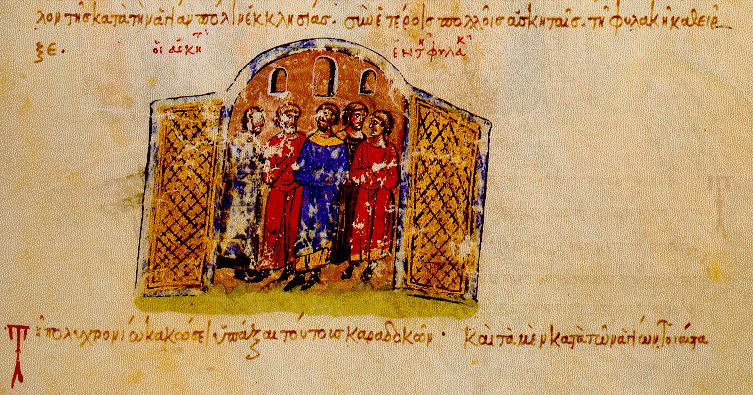 λον τῆς κατὰ τὴν ἁγίαν πόλιν ἐκκλησίας. σὺν ἑτέροις πολλοῖς ἀσκηταῖς. τῆ φυλακῆ καθεῖρ
ξε.
οἱ ἀσκητ(αί) ἐν τῆ φυλακῆ
Τῆ πολυχρονίω κακώσει ὑπάξαι τούτοις καραδοκῶν · καὶ τὰ μὲν κατὰ τῶν ἁγίων τοιαῦτα